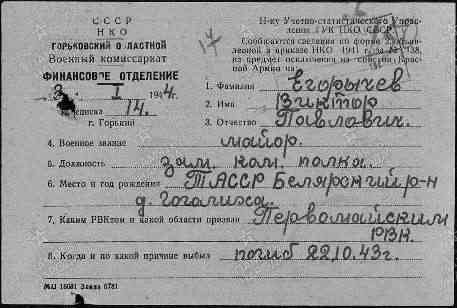 СССР
НКО
ГОРЬКОВСКИЙ ОБЛАСТНОЙ
Военный комиссариат
ФИНАНСОВОЕ ОТДЕЛЕНИЕ
3. I 1944г.
14.
г. Горький
17
Н-ку Учетно-статистического Управления ГУК НКО СССР
Сообщаются сведения по форме
в приказе НКО 1941 г. № 138,
на предмет исключения из списков Красной Армии
1. Фамилия Егорычев
2. Имя Виктор
3. Отчество Павлович.
4. Военное звание майор.
5. Должность зам. ком. полка.
6. Место и год рождения ТАССР Белярский р-н
д. Гоголиха.
7. Каким РВКтом и какой области призван Первомайским
РВК.
8. Когда и по какой причине выбыл погиб 22.10.43г.
МЦ 16681 Заказ 6781